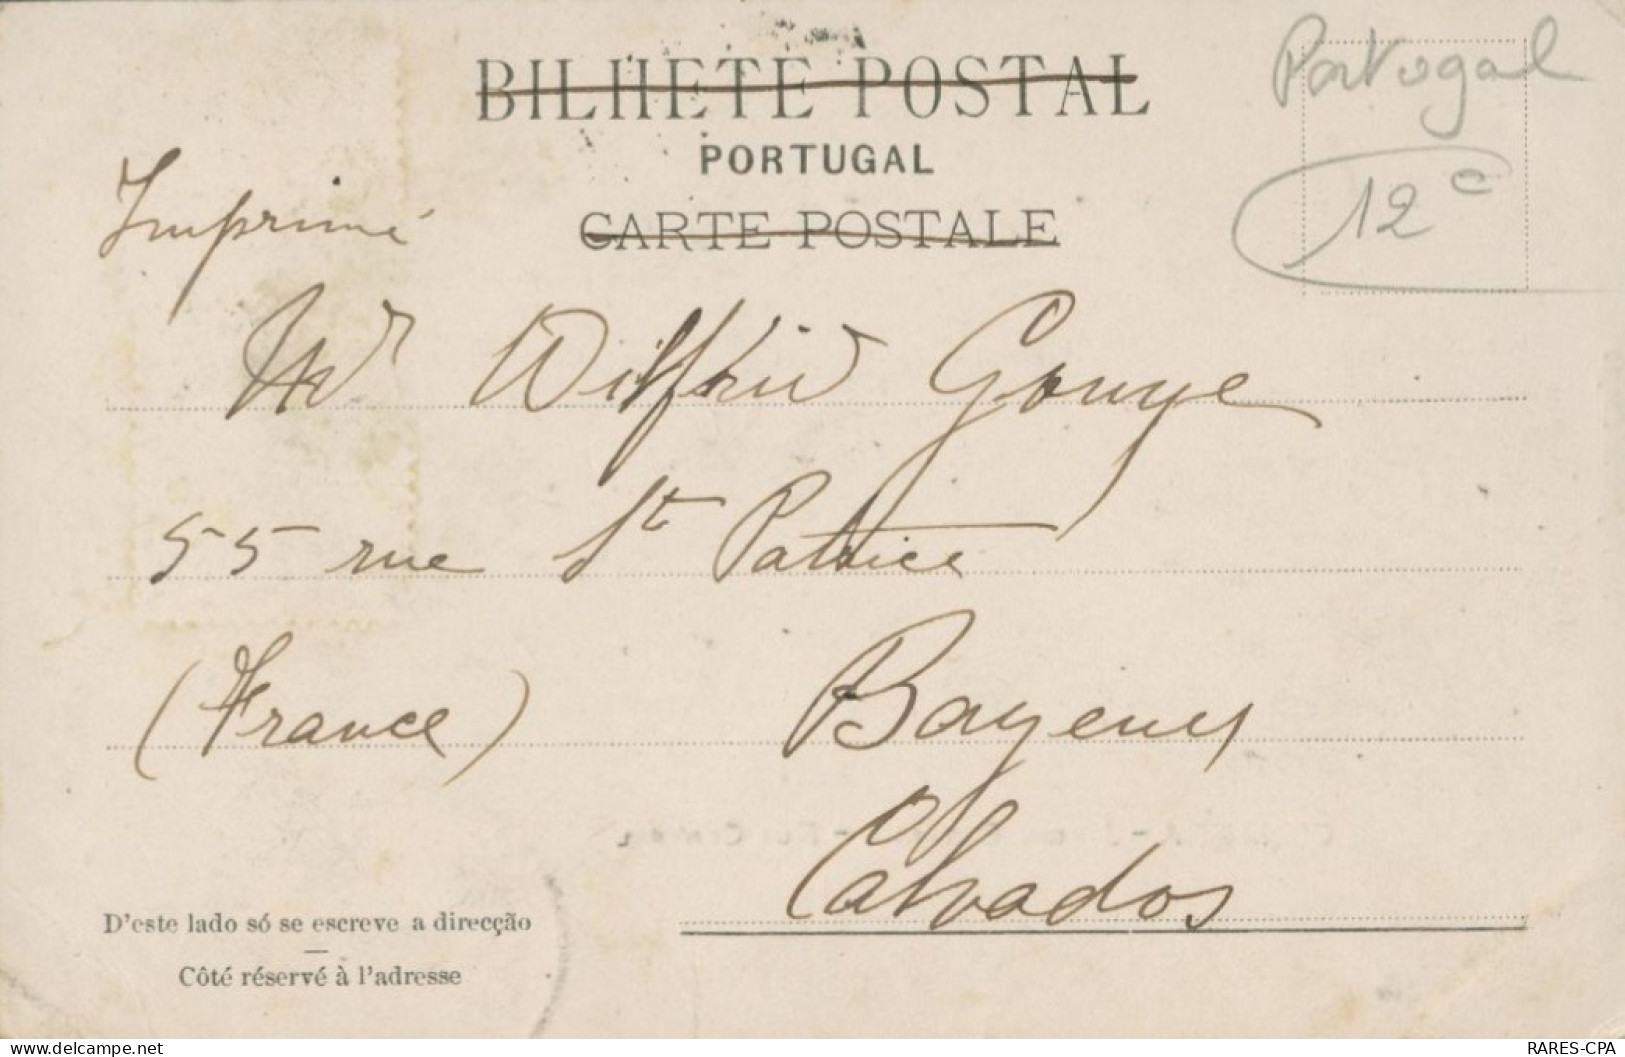 BILHETE POSTAL
Portugal
PORTUGAL
12 c
Imprimé
CARTE POSTALE
Mr Wilfrid Gouye
55 rue St Patrice
(France) Bayeux
Calvados
D'este lado só se escreve a direcção
Côté réservé à l'adresse
https://www.delcampe.net
RARES-CPA